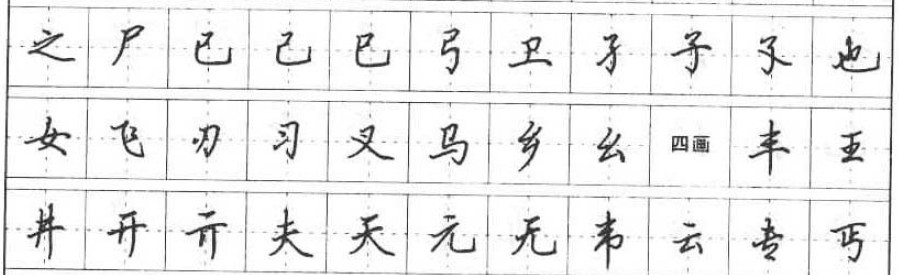 之尸已己巳弓卫孑子孓也
女飞刃习叉马乡幺四画丰王
井开亓夫天元无韦云专丐